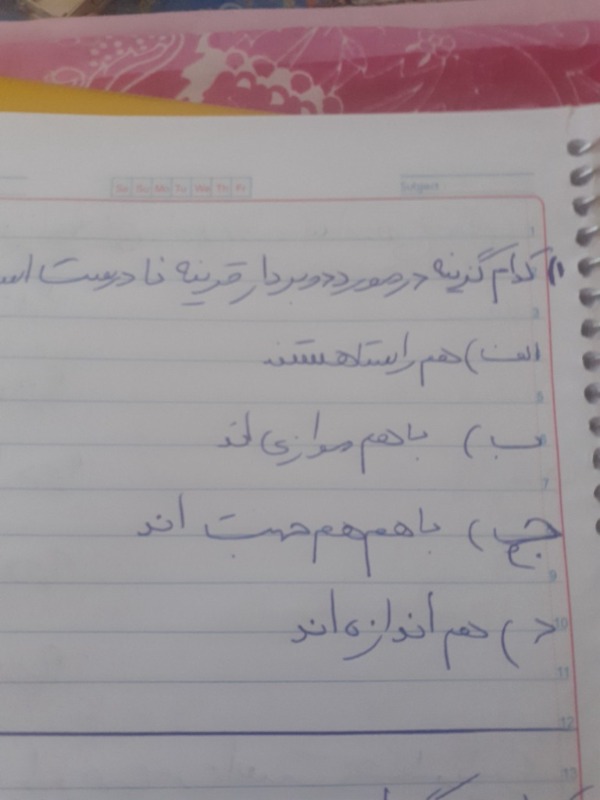 Sa Su Mo Tu We Th Fr
Subject
۱) کدام گزینه در مورد دو بردار قرینه نادرست اس
الف) هم راستا هستند
ب) با هم موازی اند
ج) با هم هم جهت اند
د) هم اندازه اند